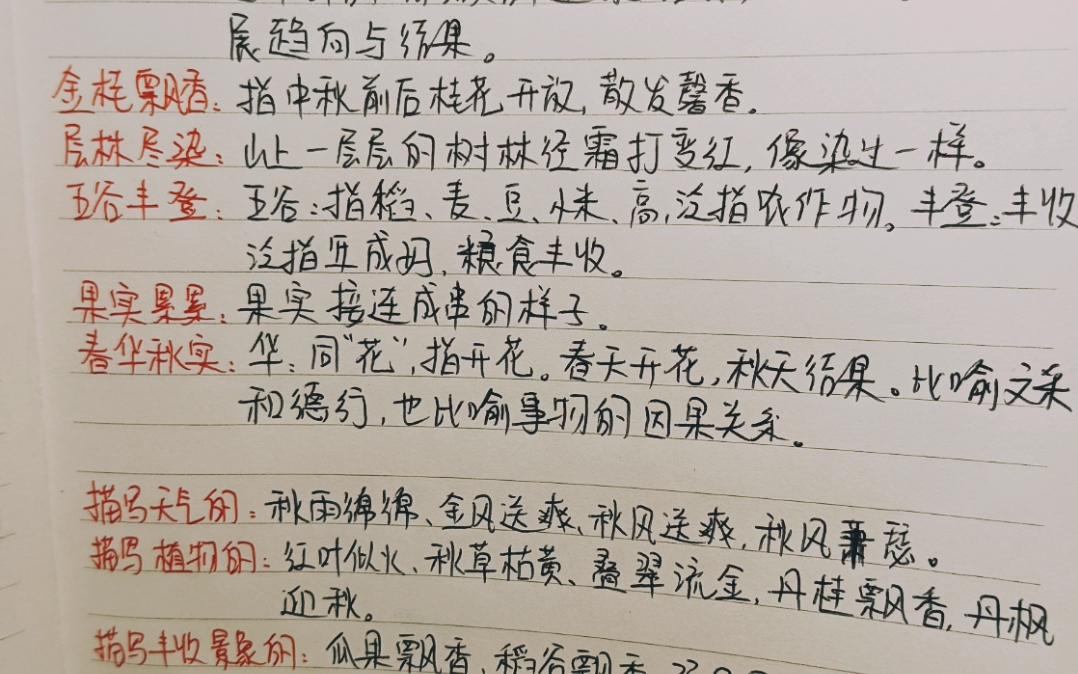 展趋向与结果。
金桂飘香：指中秋前后桂花开放，散发馨香。
层林尽染：山上一层层的树林经霜打变红，像染过一样。
五谷丰登：五谷：指稻、麦、豆、小米、高，泛指农作物。丰登：丰收
泛指年成好，粮食丰收。
果实累累：果实接连成串的样子。
春华秋实：华：同“花”，指开花。春天开花，秋天结果。比喻文采
和德行，也比喻事物的因果关系。
描写天气的：秋雨绵绵、金风送爽、秋风送爽，秋风萧瑟。
描写植物的：红叶似火、秋草枯黄、叠翠流金，丹桂飘香，丹枫
迎秋。
描写丰收景象的：瓜果飘香，稻谷飘香